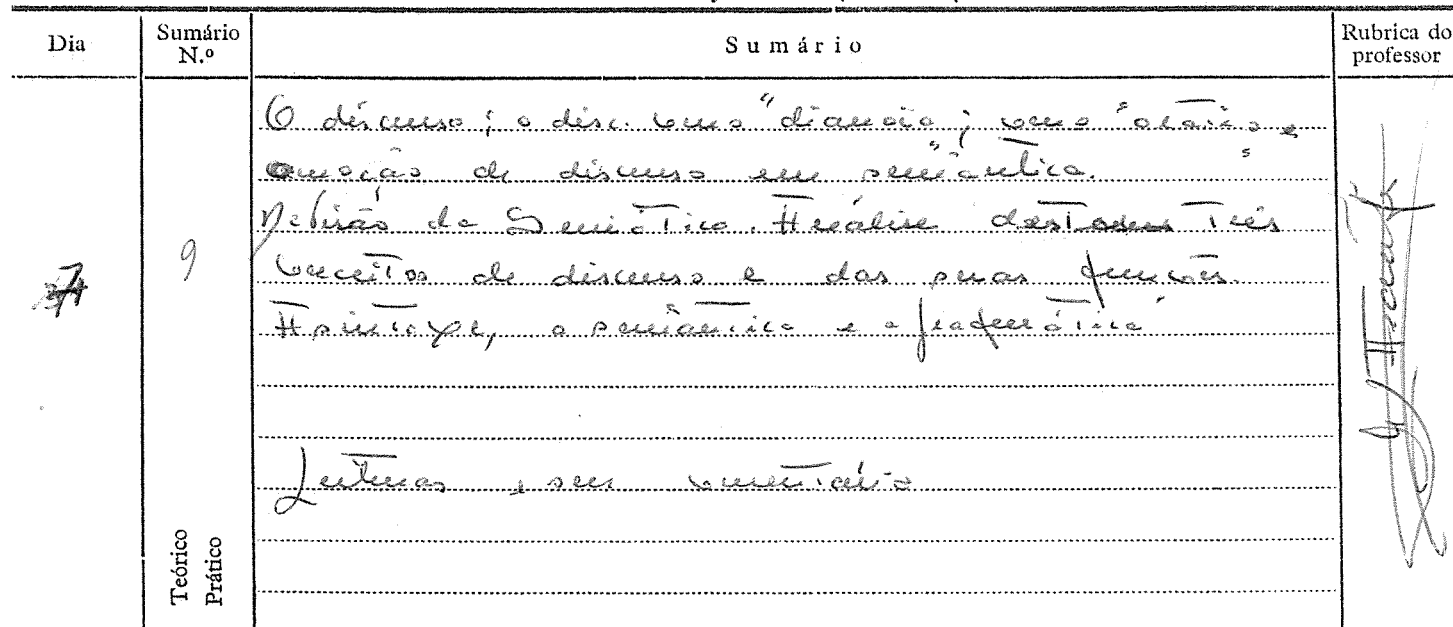 Dia
Sumário N.º
Sumário
Rubrica do professor
O discurso; o disc. como "dianoia"; como "
de discurso em semântica.
da Semiótica. Análise destes três
conceitos de discurso e das suas funções.
A sintaxe, a semântica e a pragmática
7
9
Leituras e seu comentário
Teórico
Prático